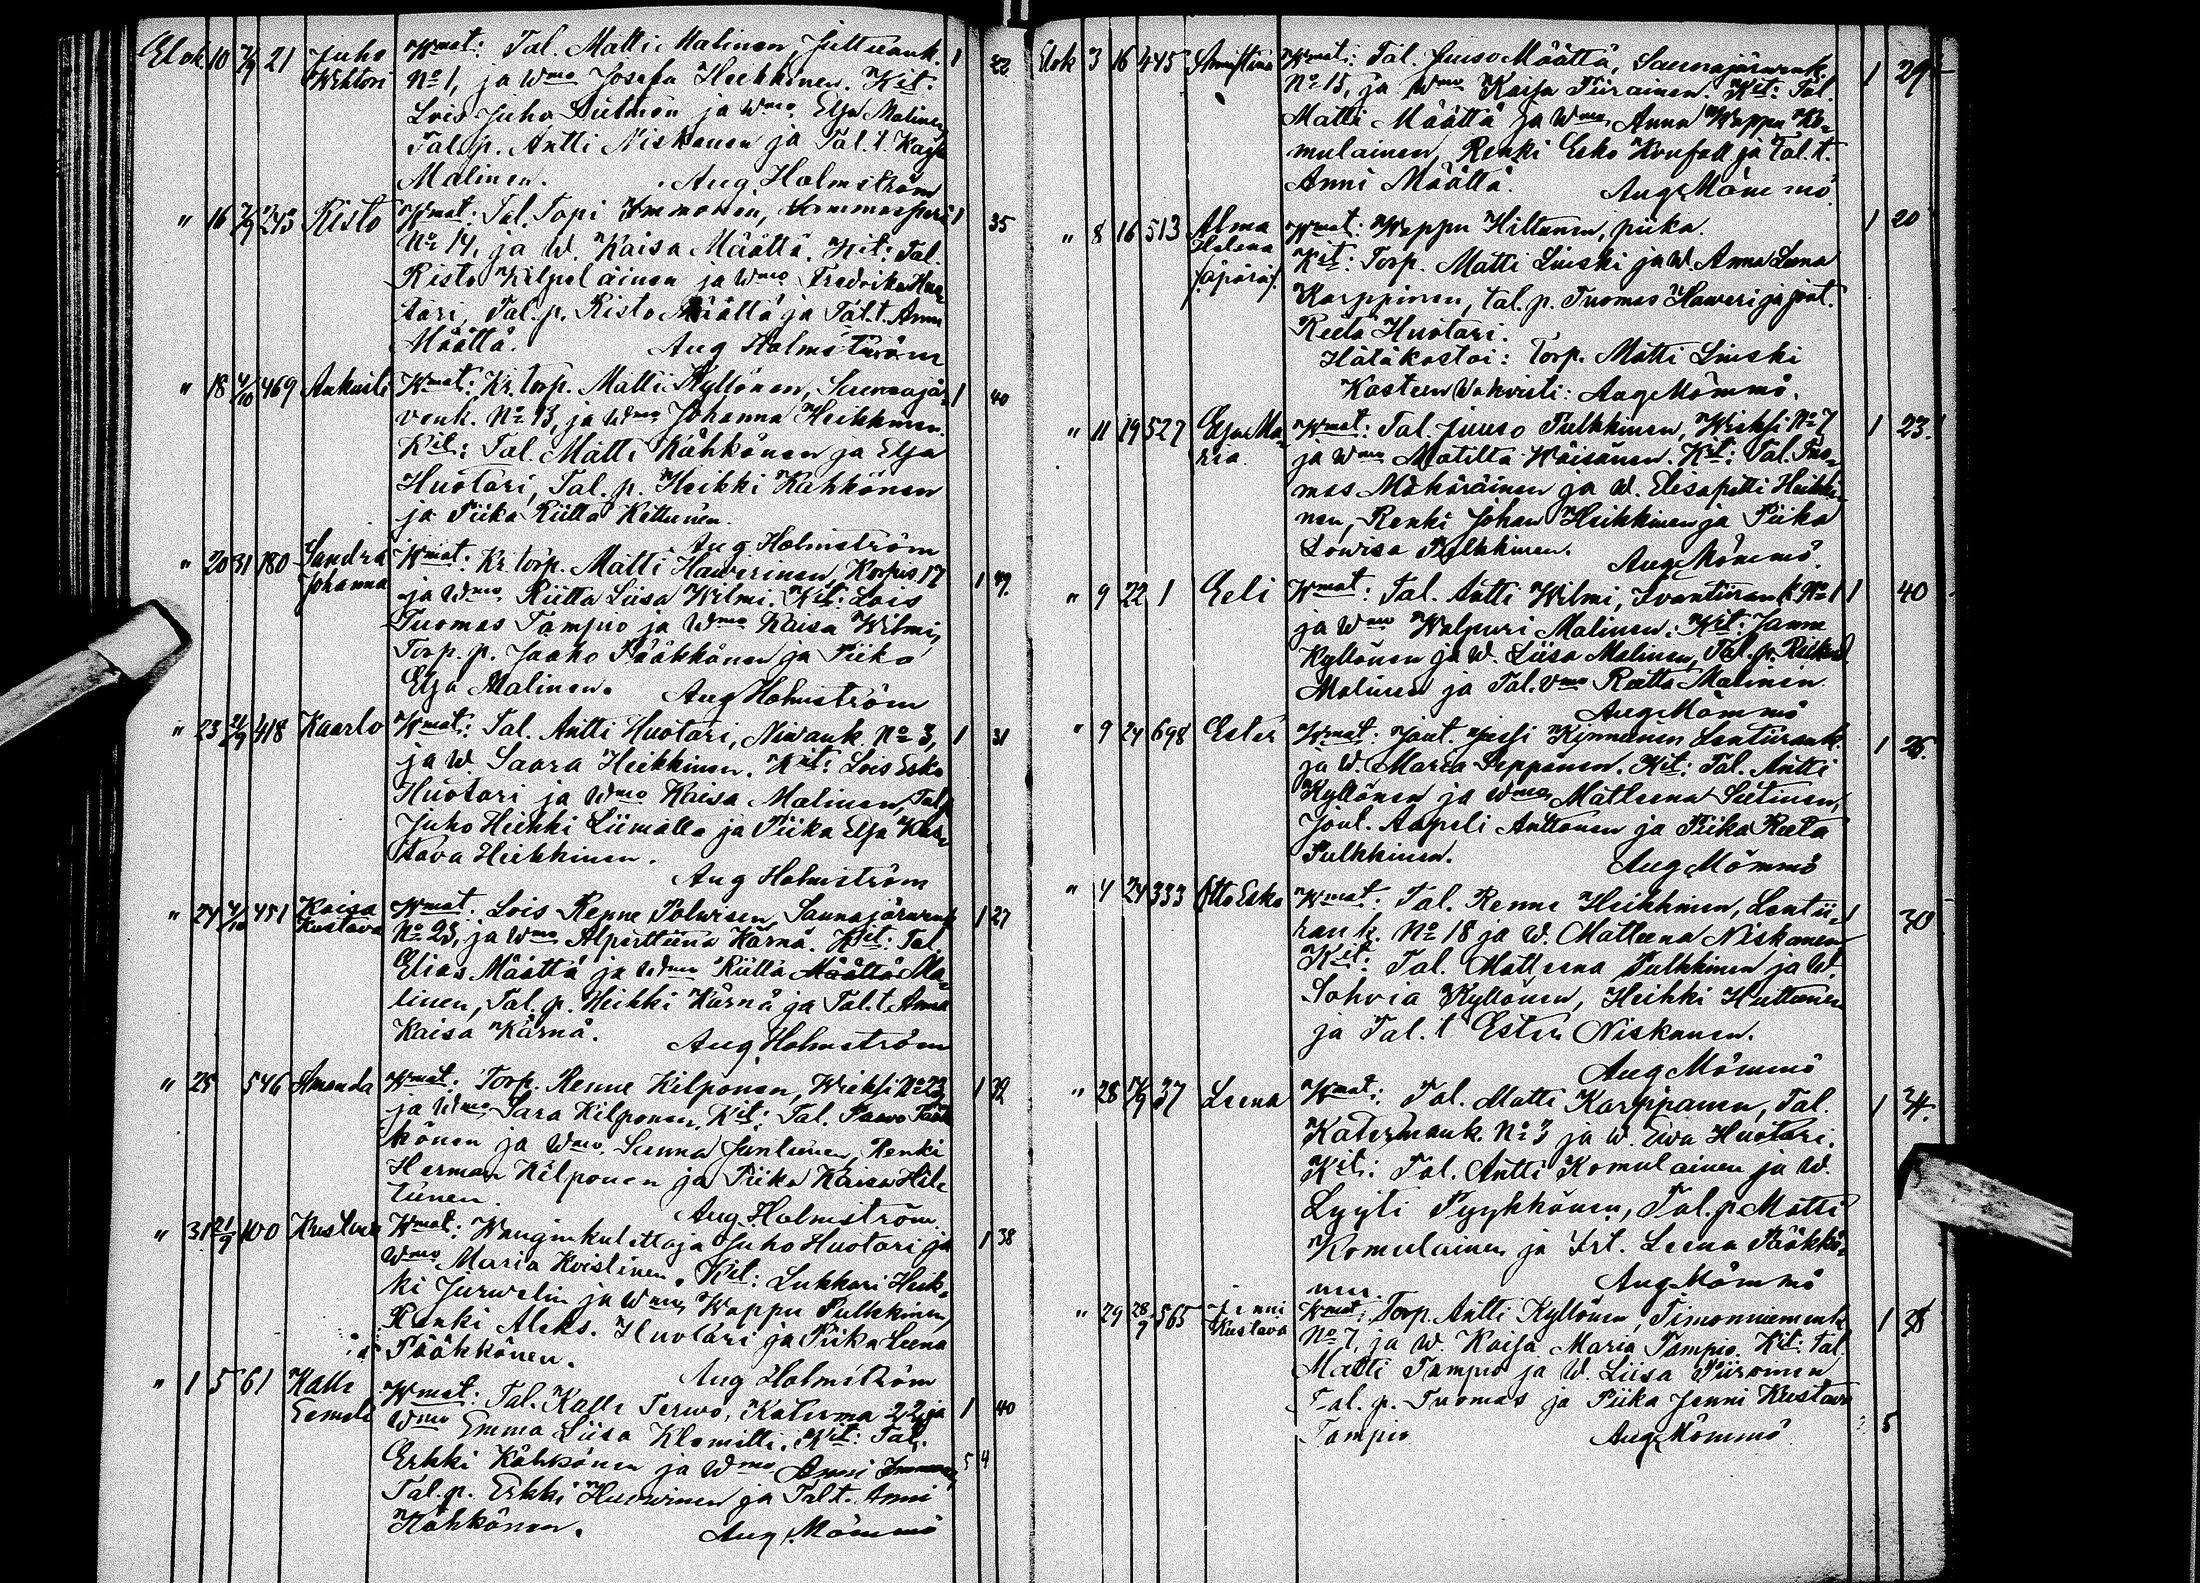 Elok. 10 7/9 21 Juho Wmat: Tal. Matti Malinen, Juttuank. 1 22
Wihtori No 1, ja Wmo Josefa Heikkinen. Kit:
Lois Juho Piirinen ja Wmo Elja Malinen
Tal. p. Antti Niskanen ja Tal. t. Kaisa
Malinen. Aug. Holmström
" 16 7/9 243 Risto Wmat: Tal. Topi Immonen, Lammasperä 1 35
No 14, ja W. Kaisa Määttä. Kit: Tal.
Risto Kilpeläinen ja Wmo Fredrika Huo-
tari, Tal. p. Risto Määttä ja Tal. t. Anna
Määttä. Aug Holmström
" 18 4/10 469 Ankusti Wmat: Kr. torp. Matti Kyllönen, Saunajär- 1 40
venk. No 13, ja Wmo Johanna Heikkinen.
Kit: Tal. Matti Kähkönen ja Elja
Huotari, Tal. p. Heikki Kähkönen
ja Piika Riitta Kettunen.
Aug. Holmström
" 20 31 180 Sandra Wmat: Kr. torp. Matti Hawerinen, Korpis 17 1 49.
Johanna ja Wmo Riitta Liisa Wilmi. Kit: Lois
Tuomas Tampio ja Wmo Kaisa Wilmi,
Torp. p. Jaako Pääkkönen ja Piika
Elja Malinen. Aug Holmström
" 23 21/9 418 Kaarlo Wmat: Tal. Antti Huotari, Niwank. No 3, 1 31
ja W. Saara Heikkinen. Kit: Lois Esko
Huotari ja Wmo Kaisa Malinen, Tal. p.
Juho Heikki Liimatta ja Piika Elja Kus-
tava Heikkinen.
Aug Holmström
" 24 4/10 451 Kaisa Wmat: Lois Renne Polwinen, Saunajärwenk 1 27
Kustava No 23, ja Wmo Alperttiina Kärnä. Kit: Tal.
Elias Määttä ja Wmo Riitta Määttä Ma-
linen, Tal. p. Heikki Kärnä ja Tal. t. Anna
Kaisa Kärnä. Aug. Holmström
" 25 546 Amanda Wmat: Torp. Renne Kilponen, Wieksi No 23, 1 32
ja Wmo Sara Kilponen. Kit: Tal. Paavo Pääk-
könen ja Wmo Sanna Juntunen, Renki
Herman Kilponen ja Piika Kaisa Hil-
tunen. Aug. Holmström.
" 31 21/9 100 Kustava Wmat: Wanginkulettaja Juho Huotari ja 1 38
Wmo Maria Koistinen. Kit: Lukkari Heik-
ki Jurwelin ja Wmo Wappu Pulkkinen,
Renki Aleks. Huotari ja Piika Leena
Pääkkönen. Aug Holmström
" 1 5 61 Kalle Wmat: Tal. Kalle Terwo, Katerma 22 ja 1 40
Eemeli Wmo Emma Liisa Klemetti. Kit: Tal.
Erkki Kähkönen ja Wmo Anni Immonen, 5 4
Tal. p. Erkki Huowinen ja Tal t. Anni
Kähkönen. Aug. Mömmö
Elok 3 16 445 Annastiina Wmat: Tal. Juuso Määttä, Saunajärwenk. 1 29
No 15, ja Wmo Kaisa Piirainen. Kit: Tal.
Matti Määttä ja Wmo Anna Wappu Ko-
mulainen, Renki Esko Kovfall ja Tal. t.
Anni Määttä. Aug. Mömmö.
" 8 16 513 Alma Wmat: Wappu Hiltunen, piika. 1 20
Helena Kit: Torp. Matti Linski ja W. Anna Leena
/: äpärä :/ Karppinen, tal. p. Tuomas Haweri ja jout.
Reeta Huotari.
Hätäkastoi: Torp. Matti Linski
Kasteen Wahvisti: Aug. Mömmö.
" 11 19 527 Elja Ma- Wmat: Tal. Juuso Pulkkinen, Wieksi No 7 1 23.
ria ja Wmo Matilta Wäisänen. Kit: Tal. Tuo-
mas Mähöräinen ja W. Elisapetti Heikki-
nen, Renki Johan Heikkinen ja Piika
Lowisa Pulkkinen. Aug. Mömmö.
" 9 22 1 Eeli Wmat: Tal. Antti Wilmi, Iwantiirank No 1 1 40
ja Wmo Walpuri Malinen. Kit: Janne
Kyllönen ja W. Liisa Malinen, Tal. p. Rikard
Malinen ja Tal. vmo Reetta Malinen.
Aug. Mömmö
" 9 24 698 Ester Wmat: Jout. Jussi Kinnunen Lentiirank. 1 26.
ja W. Maria Seppänen. Kit: Tal. Antti
Kyllönen ja Wmo Matleena Sutinen,
Jout. Aapeli Anttonen ja Piika Reeta
Pulkkinen. Aug. Mömmö
" 4 24 333 Otto Esko Wmat: Tal. Renne Heikkinen, Lentii- 1 30
rank. No 18 ja W. Matleena Niskanen
Kit: Tal. Matleena Pulkkinen ja W.
Sohvia Kyllönen, Heikki Huttunen
ja Tal. t Ester Niskanen.
Aug. Mömmö
" 28 14/9 37 Leena Wmat: Tal. Matti Karppanen, Tal. 1 34.
Katermank. No 3 ja W. Ewa Huotari.
Kit: Tal. Antti Komulainen ja W.
Lyyti Pyykkönen, Tal. p. Matti
Komulainen ja Irt. Leena Pääkkö-
nen. Aug. Mömmö
" 29 28/9 565 Jenni Wmat: Torp. Antti Kyllönen, Timonniemenk 1 38
Kustava No 7, ja W. Kaisa Maria Tampio. Kit: Tal.
Matti Tampio ja W. Liisa Piironen
Tal. p. Tuomas ja Piika Jenni Kustava
Tampio Aug. Mömmö 5